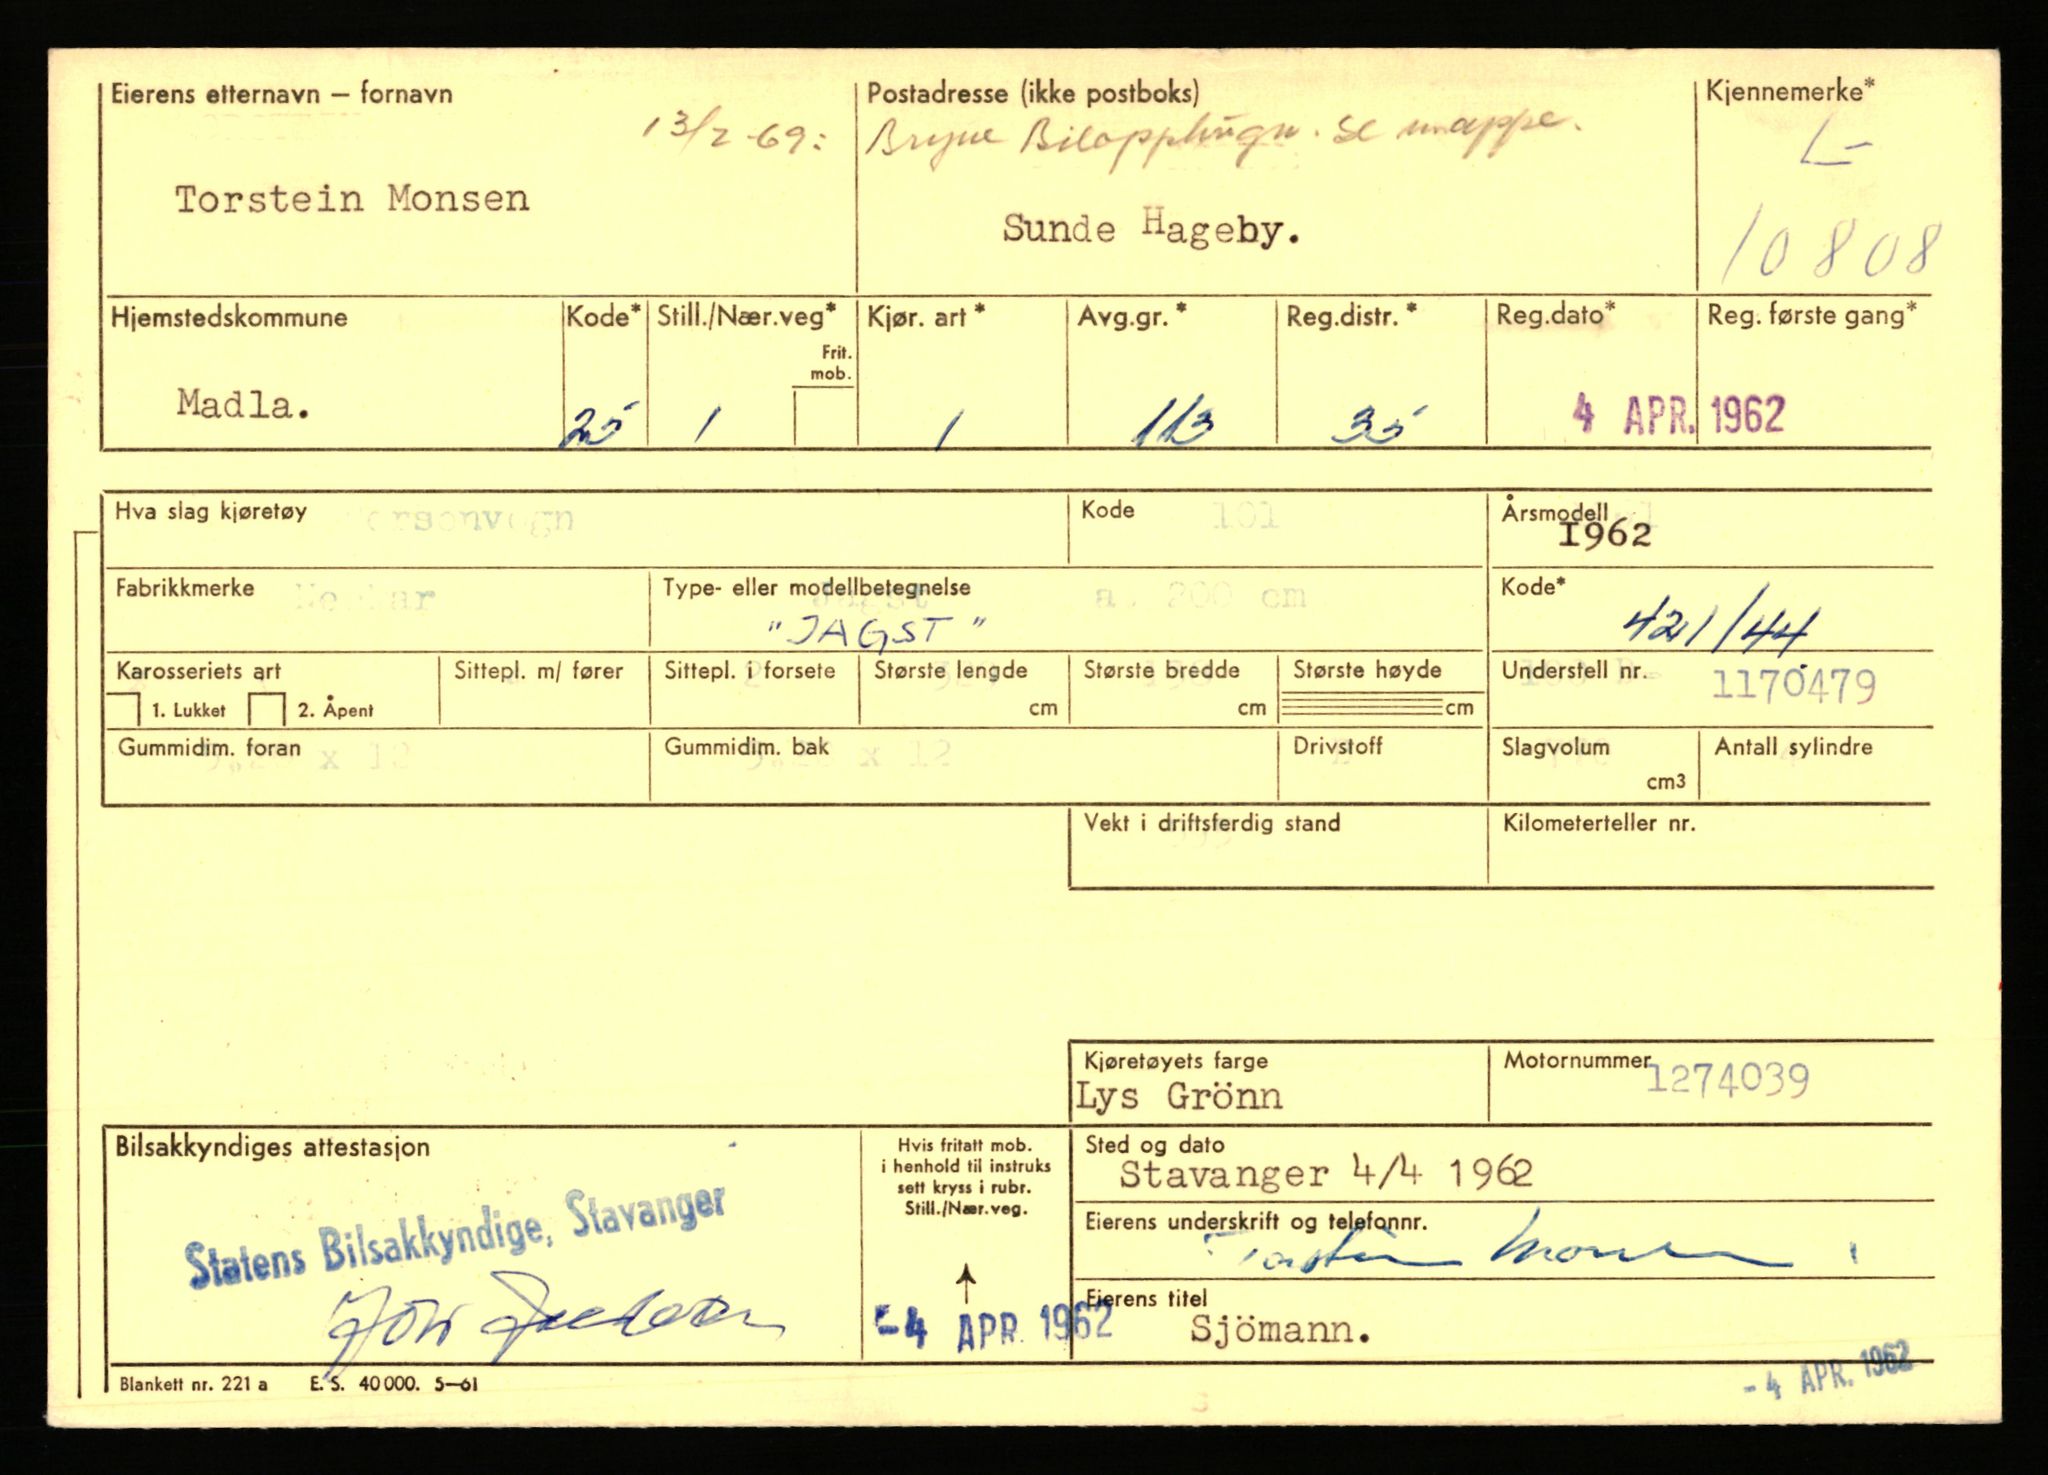 Eierens etternavn – fornavn
Postadresse (ikke postboks)
Kjennemerke*
13/2-69: Bryne Bilopphugn. se mappe.
L-
Torstein Monsen
Sunde Hageby.
10808
Hjemstedskommune
Kode*
Still./Nær.veg*
Frit. mob.
Kjør. art *
Avg.gr. *
Reg.distr. *
Reg.dato*
Reg. første gang*
Madla.
25
1
1
113
35
4 APR. 1962
Hva slag kjøretøy
Personvogn
Kode
101
Årsmodell
1962
Fabrikkmerke
Neckar
Type- eller modellbetegnelse
Jagst
a. 200 cm
"JAGST"
Kode*
421/44
Karosseriets art
1. Lukket
2. Åpent
Sittepl. m/ fører
Sittepl. i forsete
Største lengde
cm
Største bredde
cm
Største høyde
cm
Understell nr.
1170479
Gummidim. foran
Gummidim. bak
x 12
Drivstoff
Slagvolum
cm3
Antall sylindre
Vekt i driftsferdig stand
Kilometerteller nr.
Kjøretøyets farge
Lys Grönn
Motornummer
1274039
Bilsakkyndiges attestasjon
Statens Bilsakkyndige, Stavanger
Hvis fritatt mob.
i henhold til instruks
sett kryss i rubr.
Still./Nær.veg.
-4 APR. 1962
Sted og dato
Stavanger 4/4 1962
Eierens underskrift og telefonnr.
Torstein Monsen
Eierens titel
Sjömann.
-4 APR. 1962
Blankett nr. 221 a E. S. 40 000. 5–61